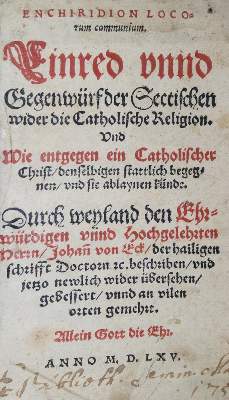 ENCHIRIDION LOCO-
rum communium.
Einred vnnd
Gegenwürf der Sectischen
wider die Catholische Religion.
Vnd
Wie entgegen ein Catholischer
Christ/denselbigen stattlich begeg-
nen/vnd sie ablaynen künde.
Durch weyland den Ehr-
würdigen vnnd Hochgelehrten
Herrn/Johañ von Eck/der hailigen
schrifft Doctorn ꝛc. beschriben/vnd
jetzo newlich wider übersehen/
gebessert/vnnd an vilen
orten gemehrt.
Allein Gott die Ehr.
ANNO M. D. LXV.